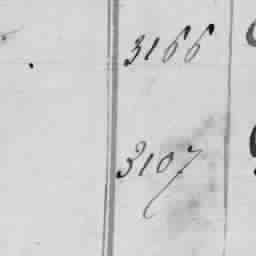 3166
3107